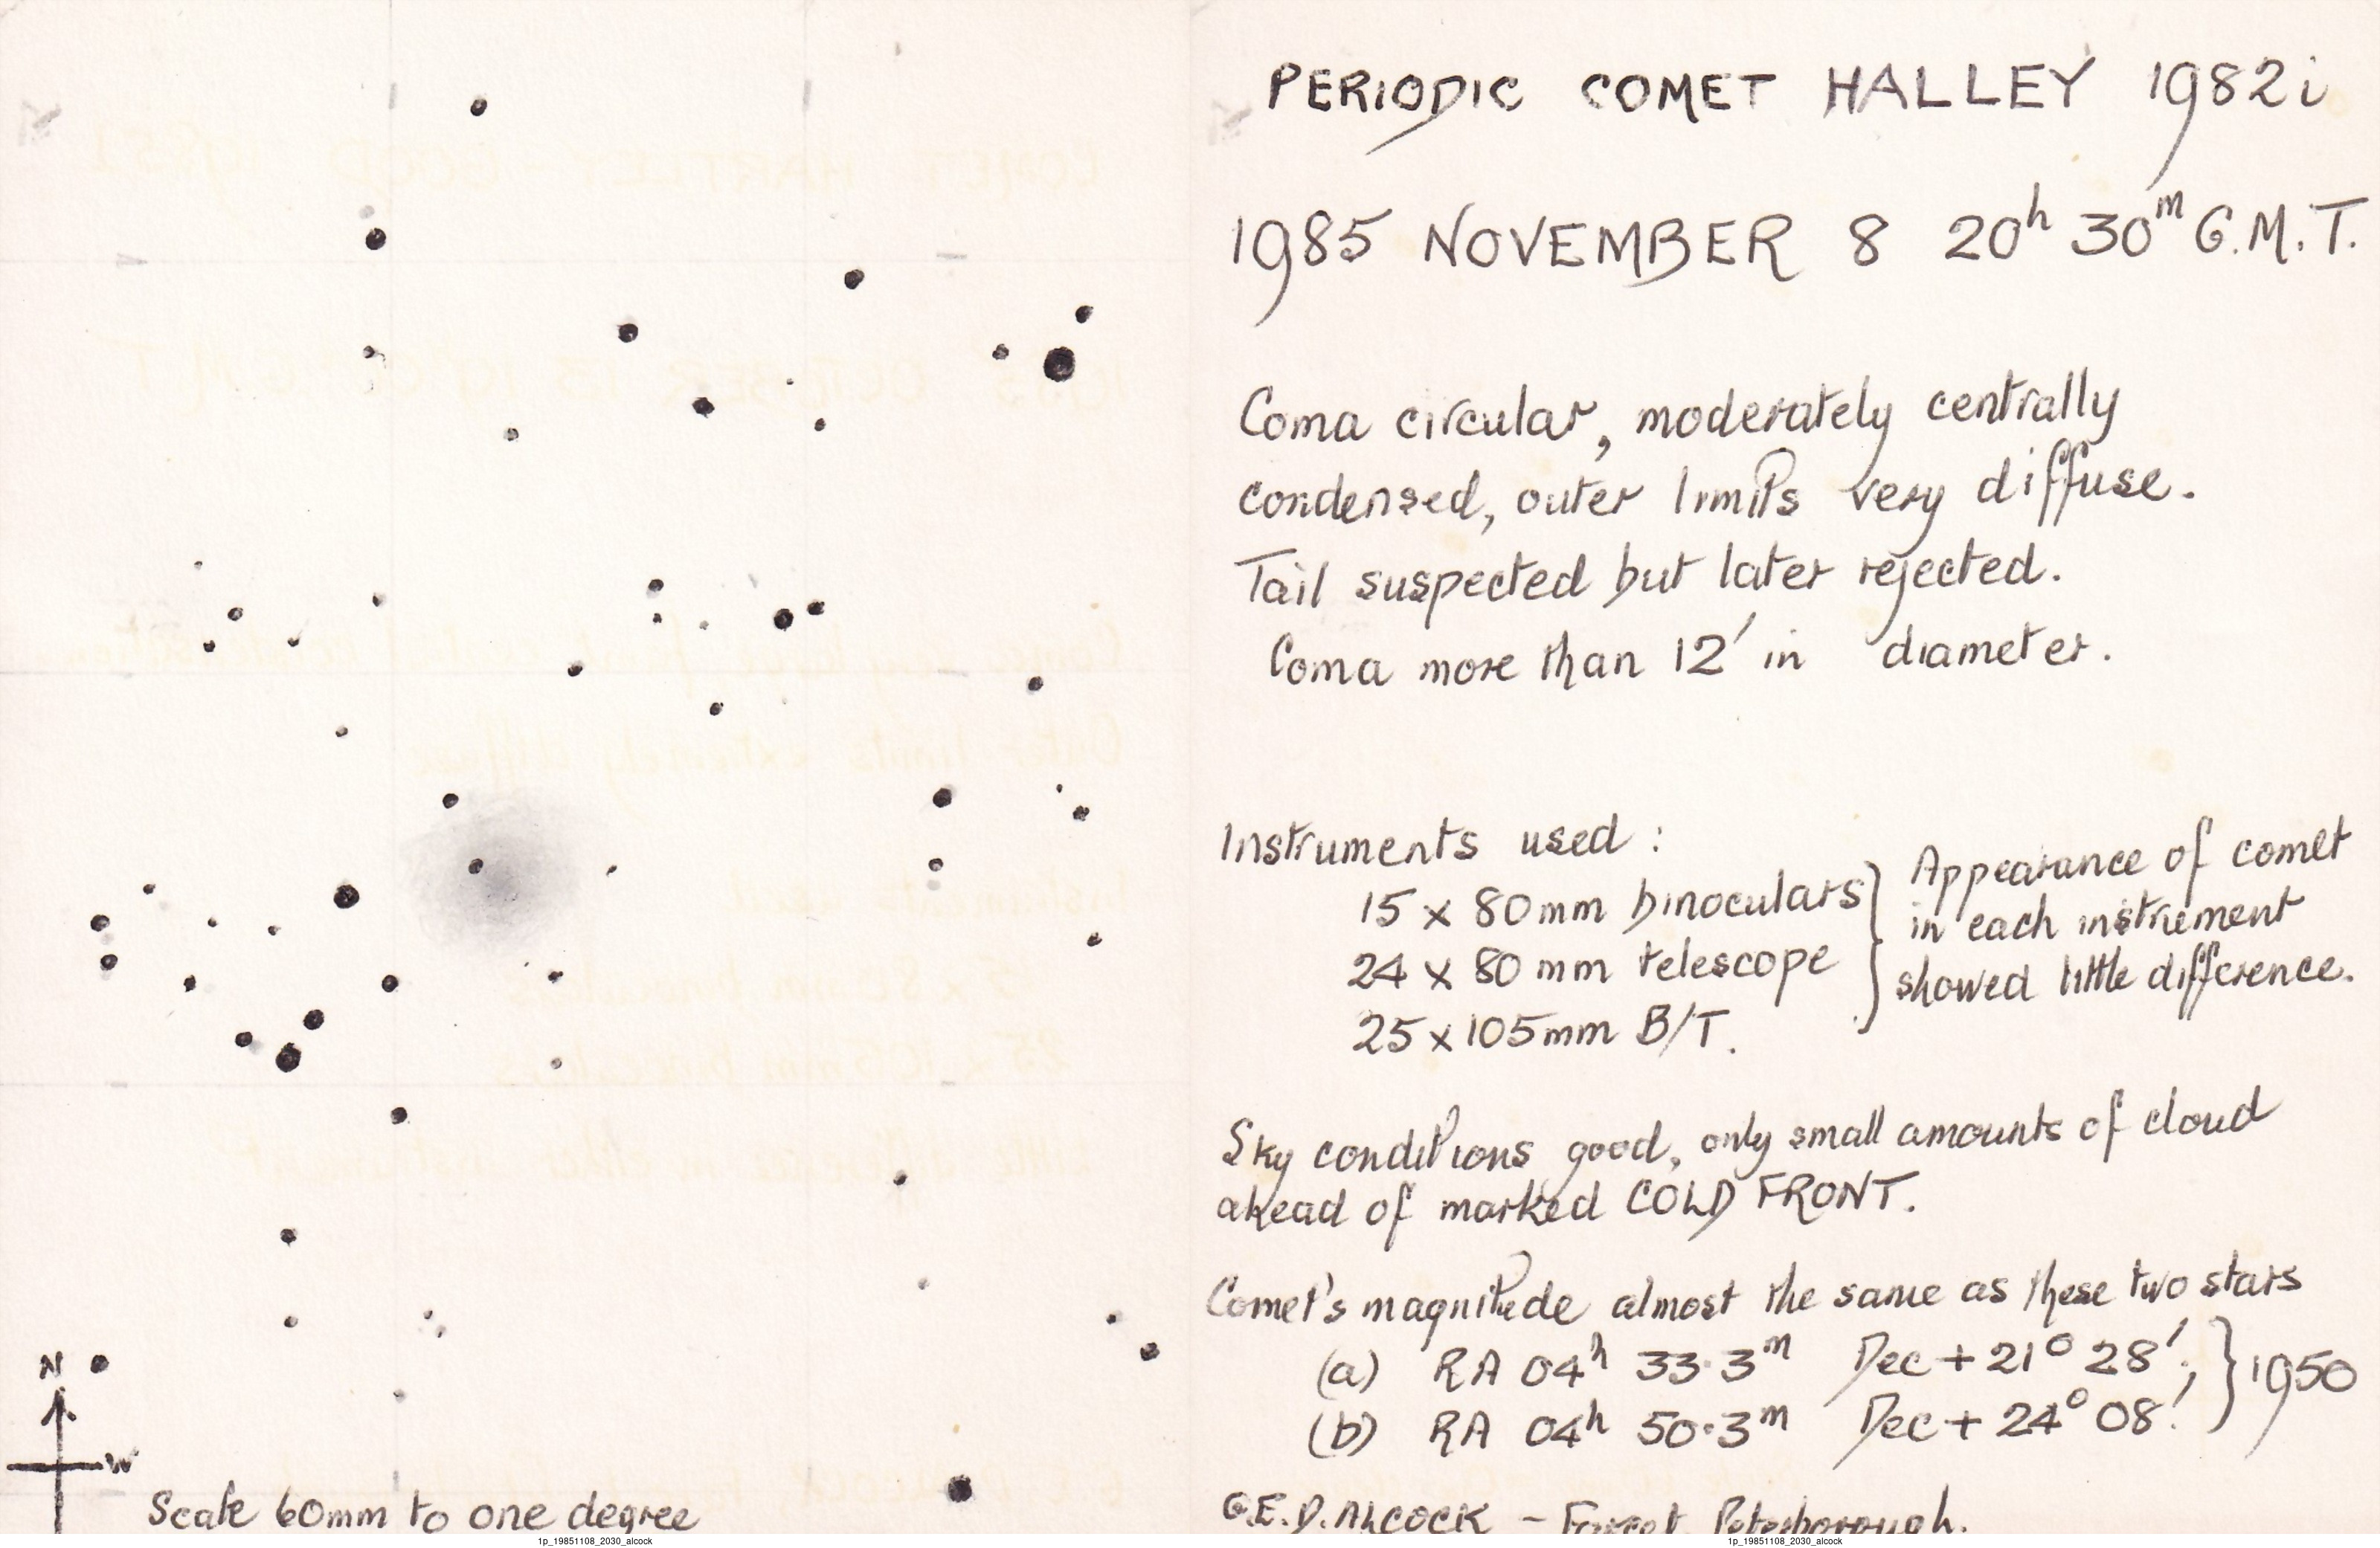 PERIODIC COMET HALLEY 1982i
1985 NOVEMBER 8 20h 30m G.M.T.
Coma circular, moderately centrally
condensed, outer limits very diffuse.
Tail suspected but later rejected.
Coma more than 12′ in diameter.
Instruments used :
15 x 80mm binoculars } Appearance of comet
24 x 80mm telescope } in each instrument
25 x 105mm B/T. } showed little difference.
Sky conditions good, only small amounts of cloud
ahead of marked COLD FRONT.
Comet's magnitude almost the same as these two stars
(a) RA 04h 33·3m Dec + 21° 28′; } 1950
(b) RA 04h 50·3m Dec + 24° 08′. }
G.E.D. ALCOCK – Farcet, Peterborough.
N
W
Scale 60mm to one degree
1p_19851108_2030_alcock
1p_19851108_2030_alcock